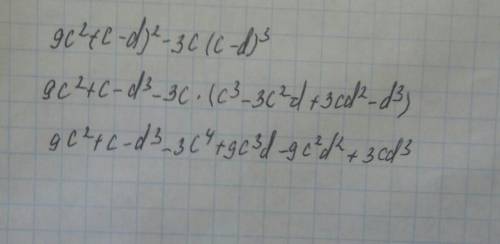 9c²+(c-d)²-3c(c-d)³
9c²+c-d³-3c·(c³-3c²d+3cd²-d³)
9c²+c-d³-3c⁴+9c³d-9c²d²+3cd³